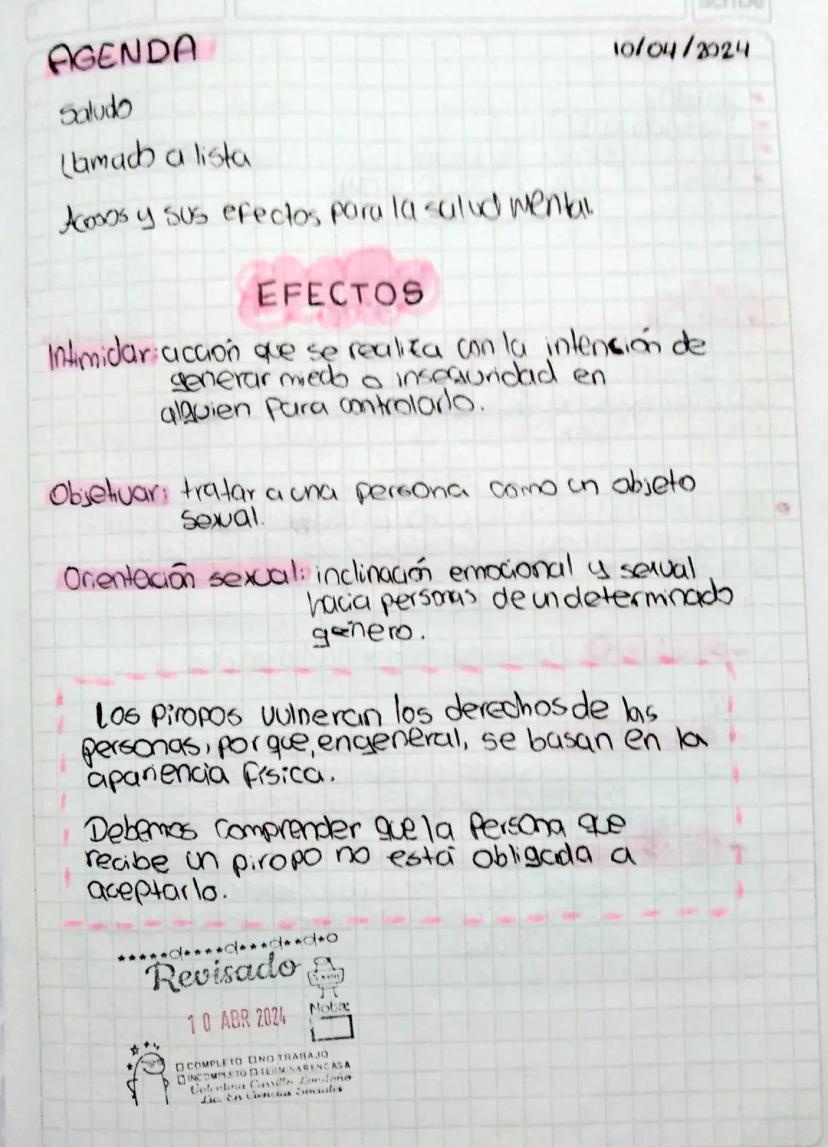 AGENDA 10/04/2024
Saludo
Llamado a lista
Acosos y sus efectos para la salud mental.
EFECTOS
Intimidar: acción que se realiza con la intención de
generar miedo o inseguridad en
alguien para controlarlo.
Objetivar: tratar a una persona como un objeto
sexual.
Orientación sexual: inclinación emocional y sexual
hacia personas de un determinado
género.
Los piropos vulneran los derechos de las
personas, porque, en general, se basan en la
apariencia física.
Debemos comprender que la persona que
recibe un piropo no está obligada a
aceptarlo.
Revisado
10 ABR 2024
Nota:
COMPLETO NO TRABAJO
INCOMPLETO TERMINAR EN CASA
Lic. En Ciencias Sociales